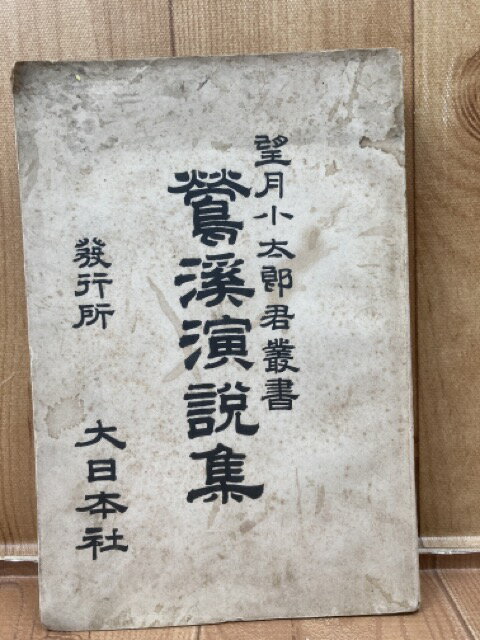 望月小太郎君叢書
鶯溪演説集
發行所　大日本社